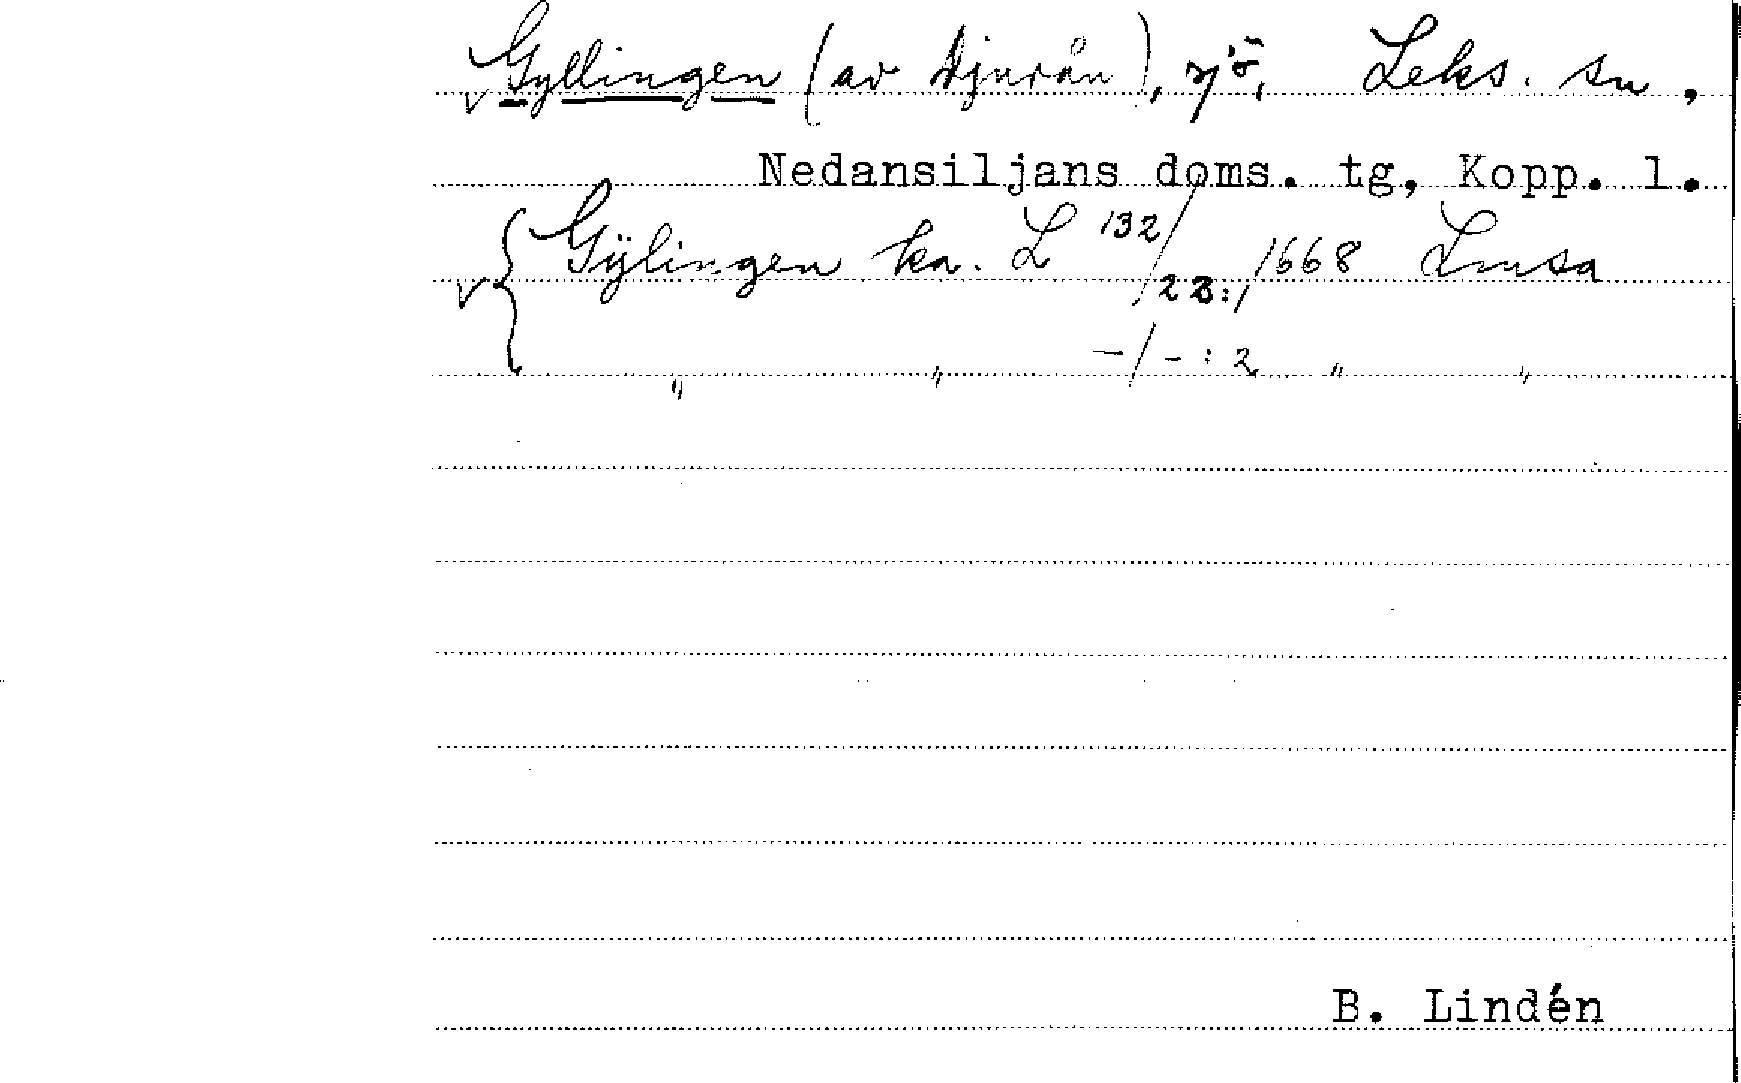 √ Gyllingen (av Djurån), sjö, Leks. sn,
Nedansiljans doms. tg, Kopp. l.
√ { Gÿlingen ka. L 132/23:1 1668 Lmsa
" " —/-:2 " "
B. Lindén